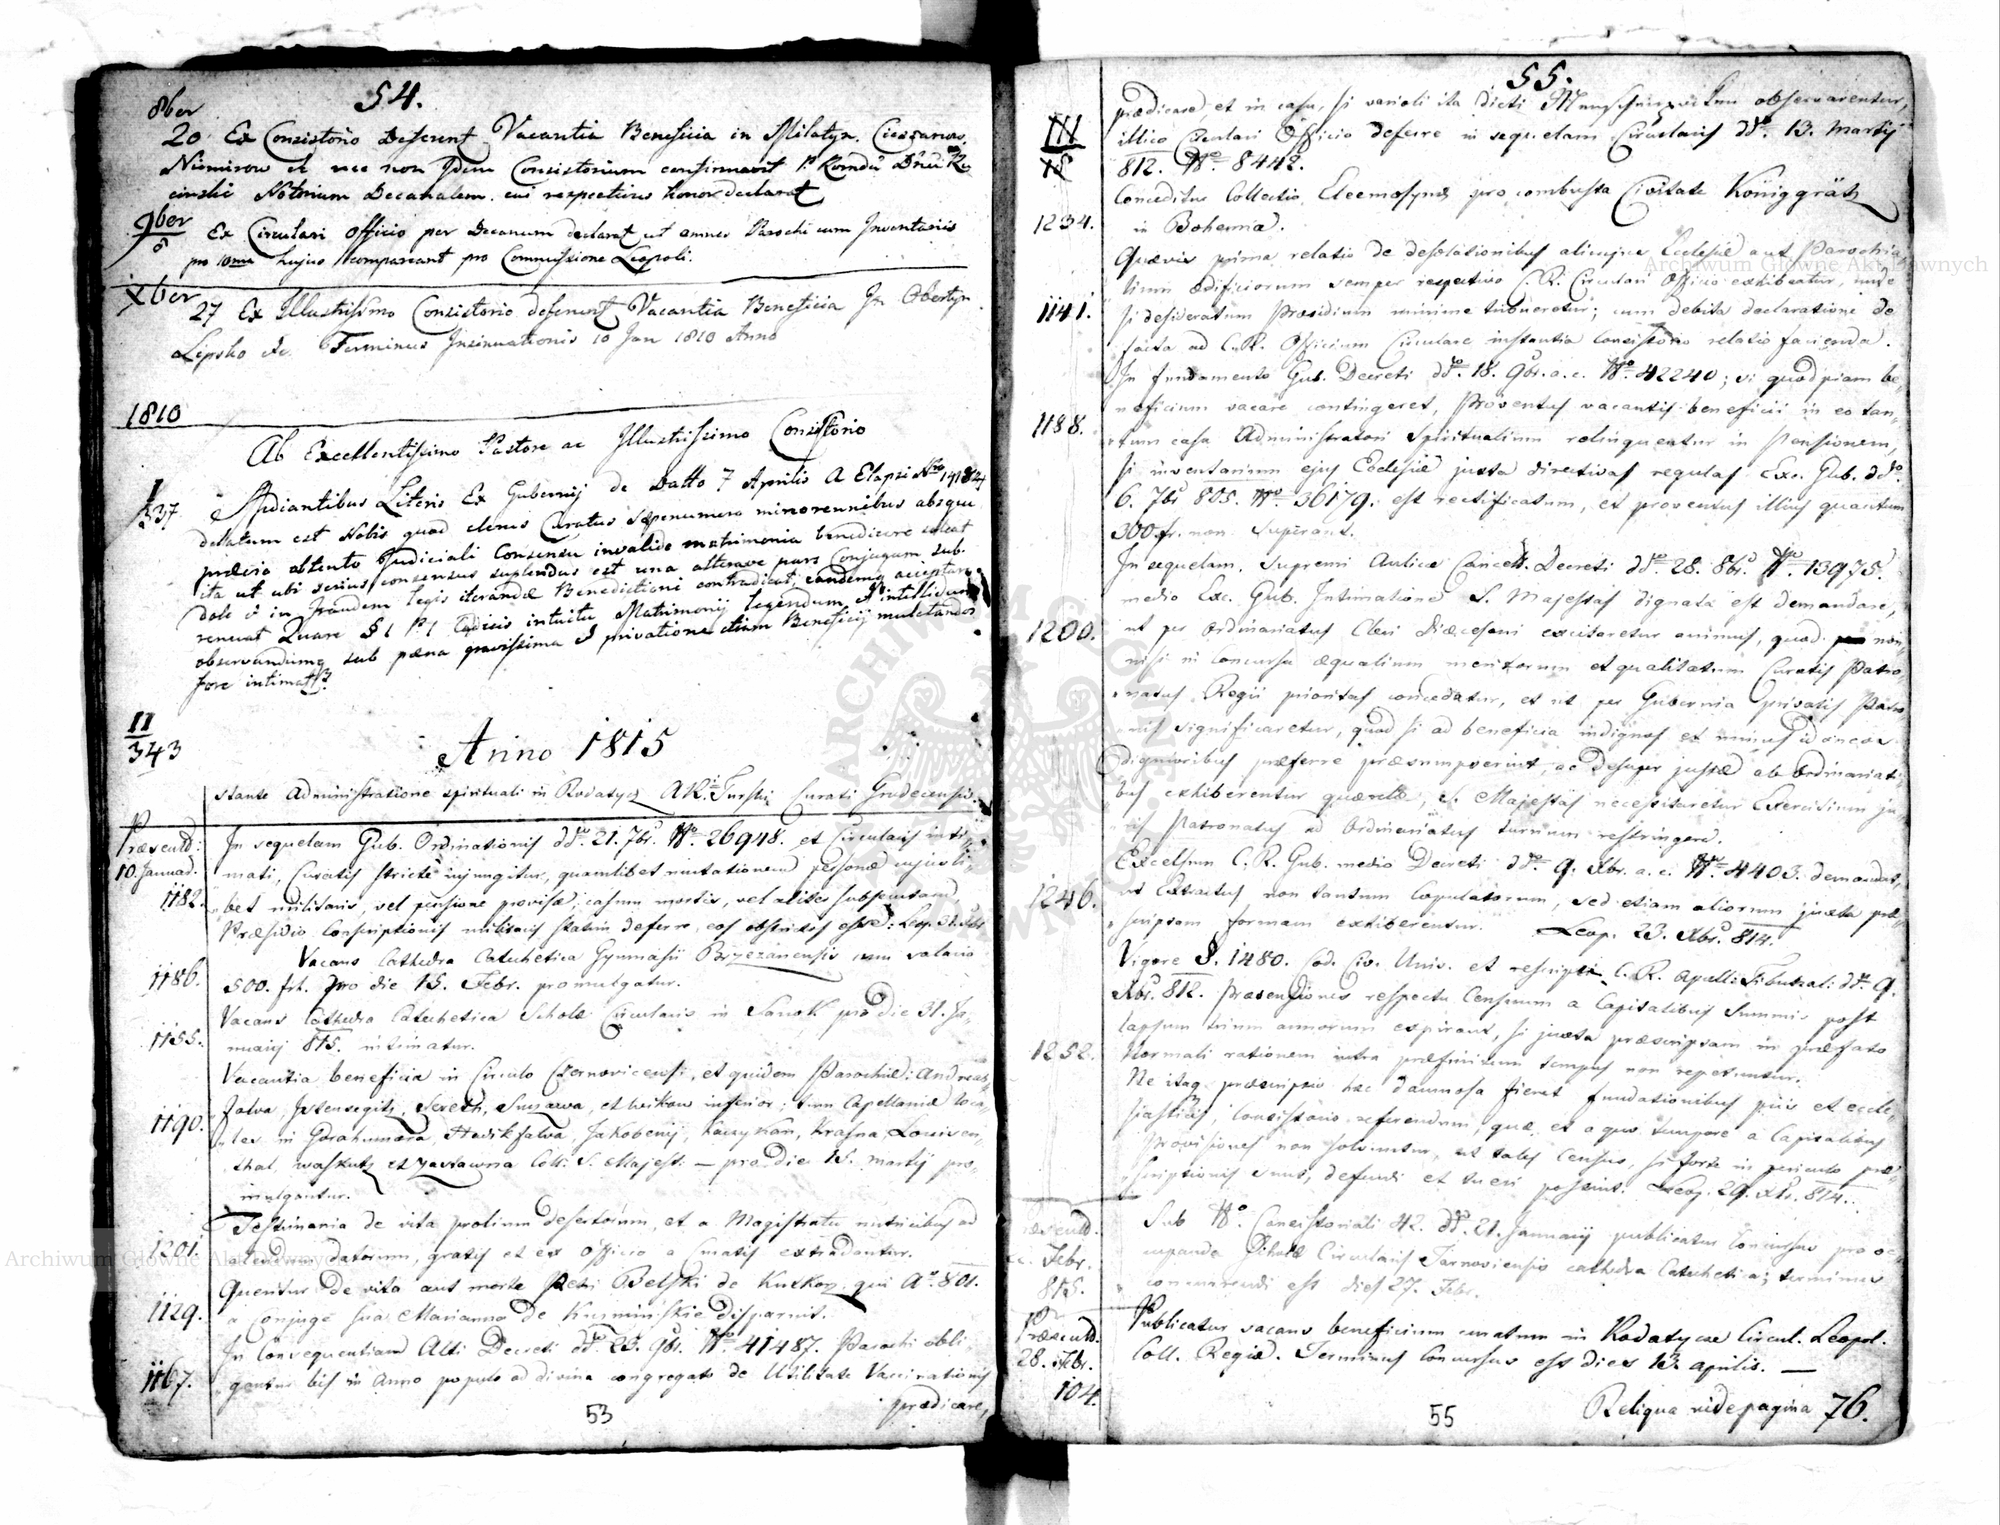 54.
8ber
20 Ex Consistorio Deferunt Vacantia Beneficia in Milatyn
Niemirow et nec non Idem Consistorium confirmavit
Notorium Decanalem cui respectivus honor declarat
9ber
8 Ex Circulari Officio per Decanum declarat ut omnes Parochi cum Inventariis
pro 10ma hujus compareant pro Commissione Leopoli.
Xber
27 Ex Illustrissimo Consistorio deferunt Vacantia Beneficia In Obertyn
Lipsko etc. Terminus Insinuationis 10 Jan 1810 Anno
1810
Ab Excellentissimo Pastore ac Illustrissimo Consistorio
I
337 Mediantibus Literis Ex Gubernij de Datto 7 Aprilis A Elapsi
delatum est Nobis quod clerus Curatus sepenumero minorennibus absque
praevio obtento Judiciali Consensu invalide matrimonia benedicere soleat
ita ut ubi serius consensus suplendus est una alterave pars Conjugum sub
dole & in fraudem legis iterandae Benedictioni contradicat, eandemq acceptare
renuat Quare § 1 Codicis intuitu Matrimonij legendum & intelligendum
observandumq sub paena gravissima & privatione etiam Beneficij mulctandos
fore intimat
II
343
Anno 1815
stante Administratione spirituali in Rodatycz A.R. Turski Curati Grodecensis
Praesentd:
10. Januar.
1182.
In sequelam Gub. Ordinationis ddo 21. 7br. No 26948. et Circularis inti-
mati, Curatis stricte injungitur, quamlibet mutationem personae cujusli-
bet militaris, vel pensione provisae, casum mortis, vel aliter subsecutam,
Praesidio Conscriptionis militaris statim deferre, eos obstrictos esse: Leop. 31.
1186.
Vacans Cathedra Catechetica Gymnasii Brzezanensis cum salario
500. frh. pro die 15. Febr. promulgatur.
1155.
Vacans Cathedra Catechetica Scholae Circularis in Sanok pro die 31. Ja-
nuarij 815. intimatur.
1190.
Vacantia beneficia in Circulo Czernovicensi, et quidem Parochiae: Andreas
falva, Istensegits, Sereth, Suczawa, et Wikow inferior; tum Capellaniae loca-
les in Gorahumora, Hadikfalva, Jakobeny, Kaczykan, Krasna, Louisen-
thal, Waskutz et Zastawna Coll. S. Majest. — pro die 15. Martij pro-
mulgantur.
1201.
Testimonia de vita prolium desertorum, et a Magistratu nutricibus ad
alendum datorum, gratis et ex Officio a Curatis extradantur.
1129.
Queritur de vita aut morte Petri Belski de Kutkorz, qui Ao. 801.
a Conjuge sua Marianna de Kuzminskie disparuit.
1167.
In Consequentiam Alti Decreti ddo 23. 9br. No 41487. Parochi obli-
gentur bis in Anno populo ad divina congregato de Utilitate Vaccinationis
praedicare,
53
55.
III
18
praedicare, et in casu, si varioli ita dicti observarentur,
illico Circulari Officio deferre in sequelam Circularis ddo. 13. Martij
812. No. 8442.
1234.
Conceditur Collectio Eleemosynae pro combusta Civitate Königgrätz
in Bohemia.
1141.
Quaevis prima relatio de desolationibus alicujus Ecclesiae aut Parochia-
lium aedificiorum semper respectivo C.R. Circulari Officio exhibeatur, unde
si desideratum Praesidium minime tribueretur; cum debita declaratione de
facta ad C.R. Officium Circulare instantia Consistorio relatio facienda.
1188.
In fundamento Gub. Decreti ddo. 18. 9br. a.c. No. 42240; si quodpiam be-
neficium vacare contingeret, Proventus vacantis beneficii in eo tan-
tum casu Administratori Spiritualium relinquentur in Pensionem,
si inventarium ejus Ecclesiae juxta directivas regulas Exc. Gub. ddo.
6. 7br 805. No 36179. est rectificatum, et proventus illius quantum
300 fr. non superant.
1200.
In sequelam Supremi Aulici Cancell. Decreti ddo. 28. 8br. No. 13975.
medio Exc. Gub. Intimatione S. Majestas dignata est demandare,
ut per Ordinariatus Cleri Dioecesani excitaretur animus, quod non
nisi in Concursu aequalium meritorum et qualitatum Curatis Patro-
natus Regii prioritas concedatur, et ut per Gubernia privatis Patro-
nis significaretur, quod si ad beneficia indignos et minus idoneos
dignioribus praeferre praesumpserint, ac desuper justae ab Ordinariati-
bus exhiberentur querelae S. Majestas necessitaretur Exercitium ju-
ris Patronatus ad Ordinariatus turnum restringere.
1246.
Excelsum C.R. Gub. medio Decreti ddo. 9. Xbr. a.c. No. 4403. demandat,
ut Extractus non tantum Copulatorum, sed etiam aliorum juxta prae-
scriptam formam exhiberentur. Leop. 23. Xbr. 814.
1252.
Vigore §. 1480. Cod. Civ. Univ. et rescripti C.R. Apell. Tribunal: ddo. 9.
Xbr. 812. Praetensiones respectu Censuum a Capitalibus Summis post
lapsum trium annorum expirant, si juxta praescriptam in praefato
Normali rationem intra praefinitum tempus non repetuntur.
Ne itaq praescriptio haec damnosa fieret fundationibus piis et eccle-
siasticis, Consistorio referendum, quae et a quo tempore a Capitalibus
Provisiones non solvuntur, ut tales Census, si forte in periculo prae-
scriptionis sunt, defendi et tueri possint. Leop. 29. Xbr. 814.
Febr.
815.
Sub No. Consistoriali 42. ddo. 21. Januarij publicatur Concursus pro oc-
cupanda Scholae Circularis Tarnoviensis cathedra Catechetica; terminus
concurrendi est dies 27. Febr.
Praesentd.
28. Febr.
104.
Publicatur vacans beneficium curatum in Rodatycze Circul. Leopol.
Coll. Regiae. Terminus Concursus est dies 13. aprilis. —
Reliqua vide pagina 76.
55
Archiwum Główne Akt Dawnych
Archiwum Główne Akt Dawnych